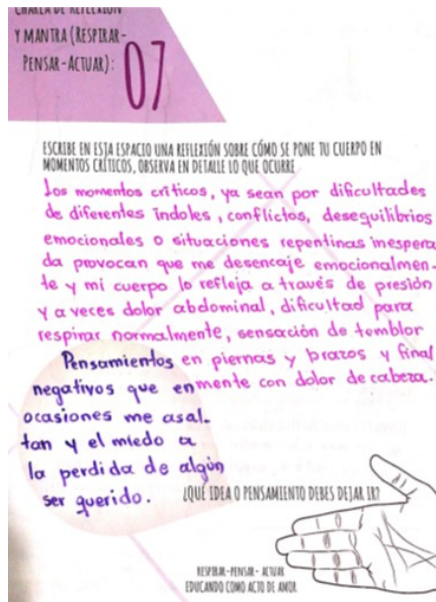 CHARLA DE REFLEXIÓN
Y MANTRA (RESPIRAR-
PENSAR-ACTUAR):
07
ESCRIBE EN ESTA ESPACIO UNA REFLEXIÓN SOBRE CÓMO SE PONE TU CUERPO EN
MOMENTOS CRÍTICOS, OBSERVA EN DETALLE LO QUE OCURRE
Los momentos críticos, ya sean por dificultades
de diferentes índoles, conflictos, desequilibrios
emocionales o situaciones repentinas inespera
da provocan que me desencaje emocionalmen-
te y mi cuerpo lo refleja a través de presión
y a veces dolor abdominal, dificultad para
respirar normalmente, sensación de temblor
en piernas y brazos y final
mente con dolor de cabeza.
Pensamientos
negativos que en
ocasiones me asal-
tan y el miedo a
la perdida de algún
ser querido.
¿QUÉ IDEA O PENSAMIENTO DEBES DEJAR IR?
RESPIRAR-PENSAR-ACTUAR
EDUCANDO COMO ACTO DE AMOR